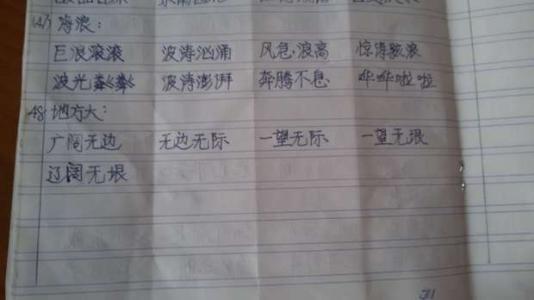 47 海浪：
巨浪滚滚 波涛汹涌 风急浪高 惊涛骇浪
波光粼粼 波涛澎湃 奔腾不息 哗哗啦啦
48 地方大：
广阔无边 无边无际 一望无际 一望无垠
辽阔无垠
31